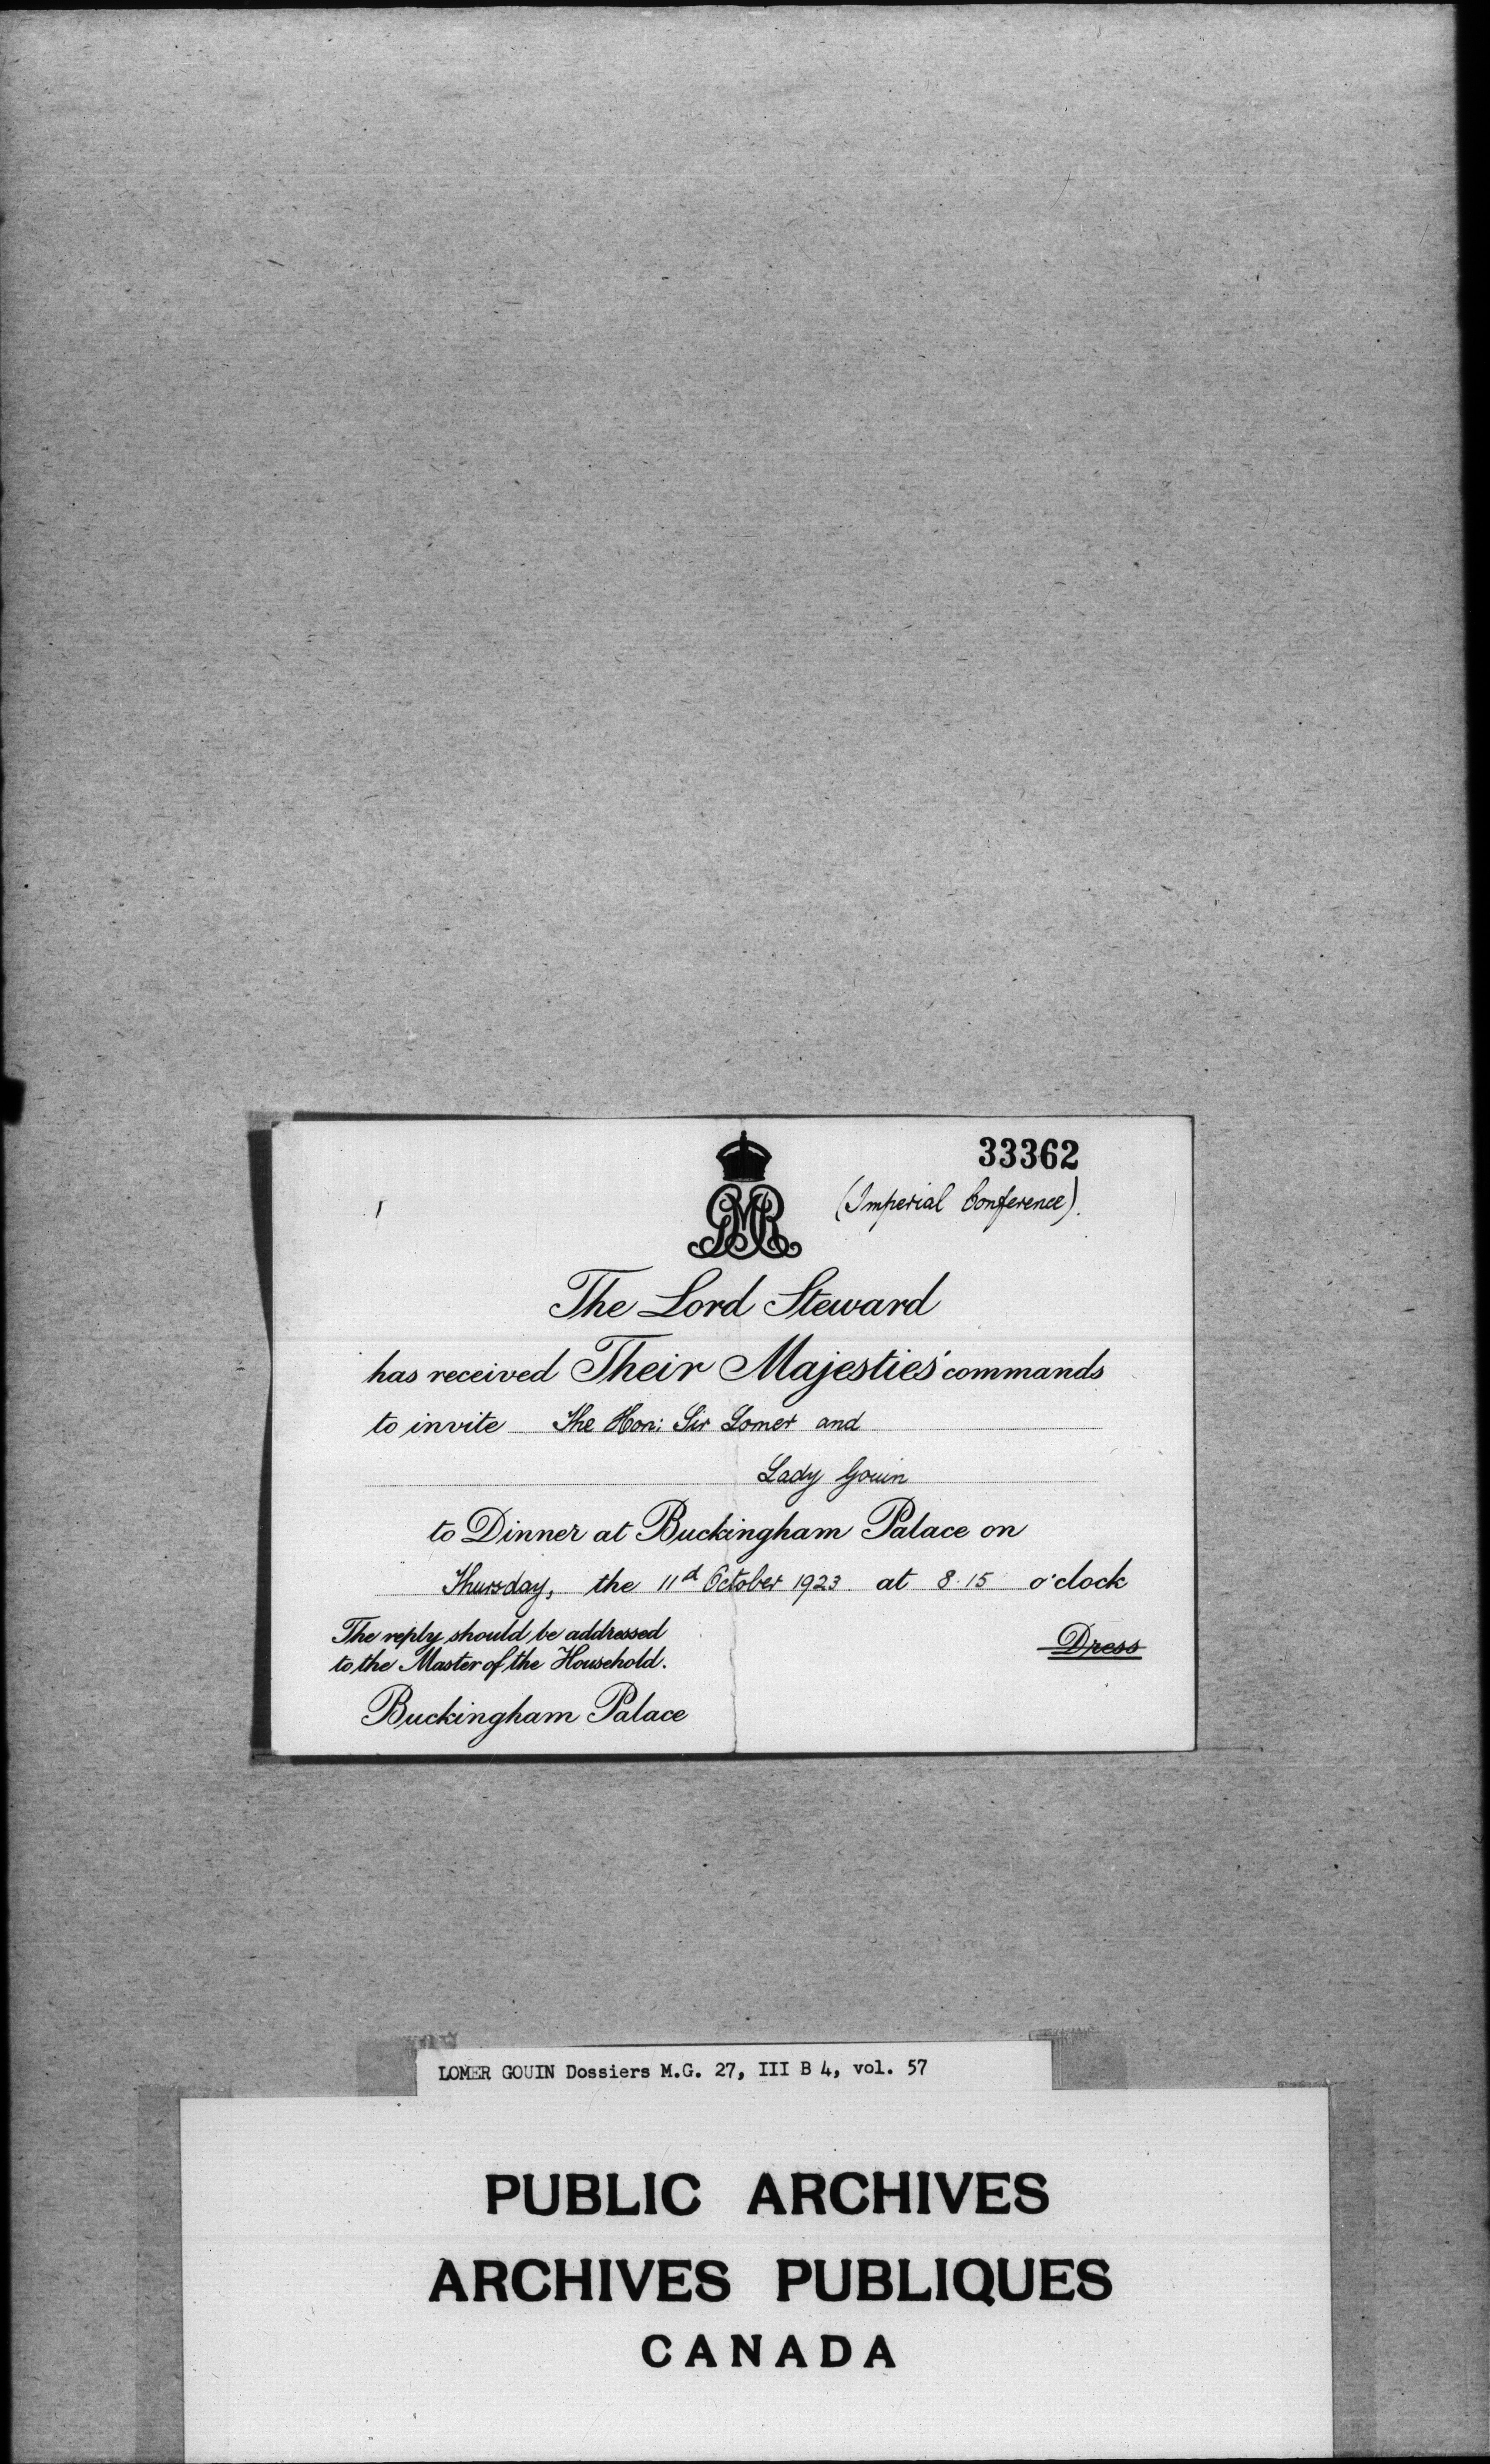 33362
(Imperial Conference).
GMR
The Lord Steward
has received Their Majesties' commands
to invite The Hon: Sir Lomer and
Lady Gouin
to Dinner at Buckingham Palace on
Thursday, the 11th October 1923 at 8.15 o'clock
The reply should be addressed
to the Master of the Household.
Dress
Buckingham Palace
LOMER GOUIN Dossiers M.G. 27, III B 4, vol. 57
PUBLIC ARCHIVES
ARCHIVES PUBLIQUES
CANADA